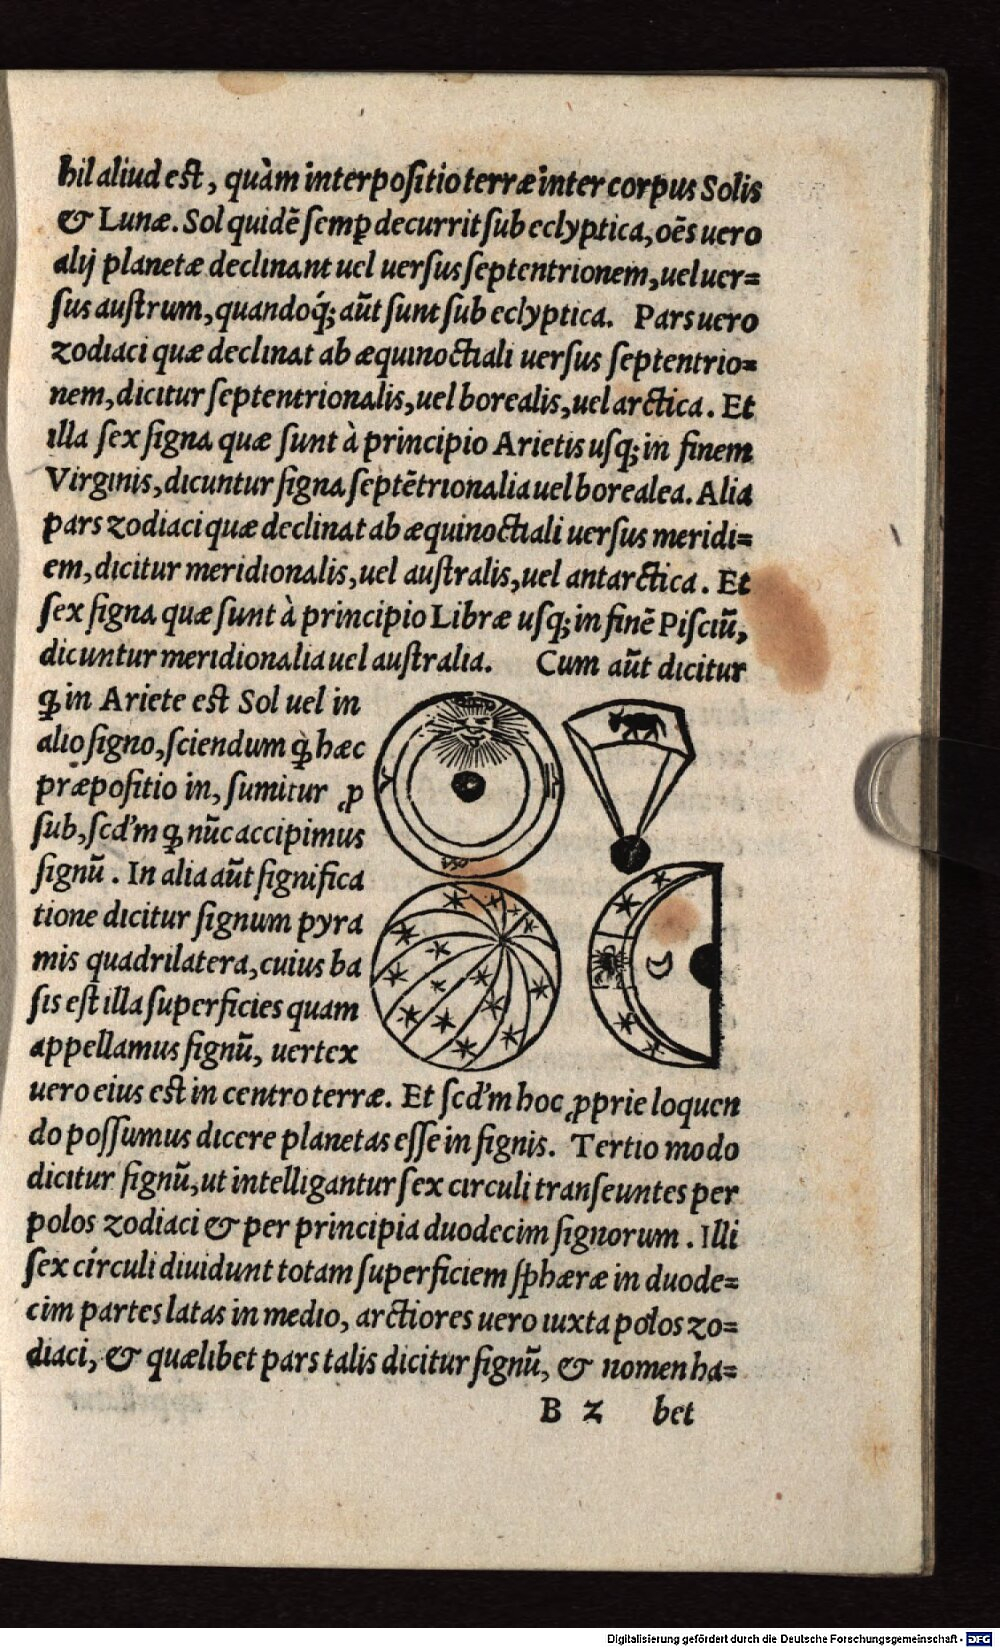 hil aliud est, quàm interpositio terræ inter corpus Solis
& Lunæ. Sol quidē semꝑ decurrit sub eclyptica, oēs uero
alij planetæ declinant uel uersus septentrionem, uel uer=
sus austrum, quandoq́; aūt sunt sub eclyptica. Pars uero
zodiaci quæ declinat ab æquinoctiali uersus septentrio=
nem, dicitur septentrionalis, uel borealis, uel arctica. Et
illa sex signa quæ sunt à principio Arietis usq; in finem
Virginis, dicuntur signa septētrionalia uel borealea. Alia
pars zodiaci quæ declinat ab æquinoctiali uersus meridi=
em, dicitur meridionalis, uel australis, uel antarctica. Et
sex signa quæ sunt à principio Libræ usq; in finē Pisciū,
dicuntur meridionalia uel australia. Cum aūt dicitur
ꝙ in Ariete est Sol uel in
alio signo, sciendum ꝙ hæc
præpositio in, sumitur ꝓ
sub, scd'm ꝙ nūc accipimus
signū. In alia aūt significa
tione dicitur signum pyra
mis quadrilatera, cuius ba
sis est illa superficies quam
appellamus signū, uertex
uero eius est in centro terræ. Et scd'm hoc ꝓprie loquen
do possumus dicere planetas esse in signis. Tertio modo
dicitur signū, ut intelligantur sex circuli transeuntes per
polos zodiaci & per principia duodecim signorum. Illi
sex círculi diuidunt totam superficiem sphæræ in duode=
cim partes latas in medio, arctiores uero iuxta polos zo=
diaci, & quælibet pars talis dicitur signū, & nomen ha=
B 2 bet
Digitalisierung gefördert durch die Deutsche Forschungsgemeinschaft - DFG